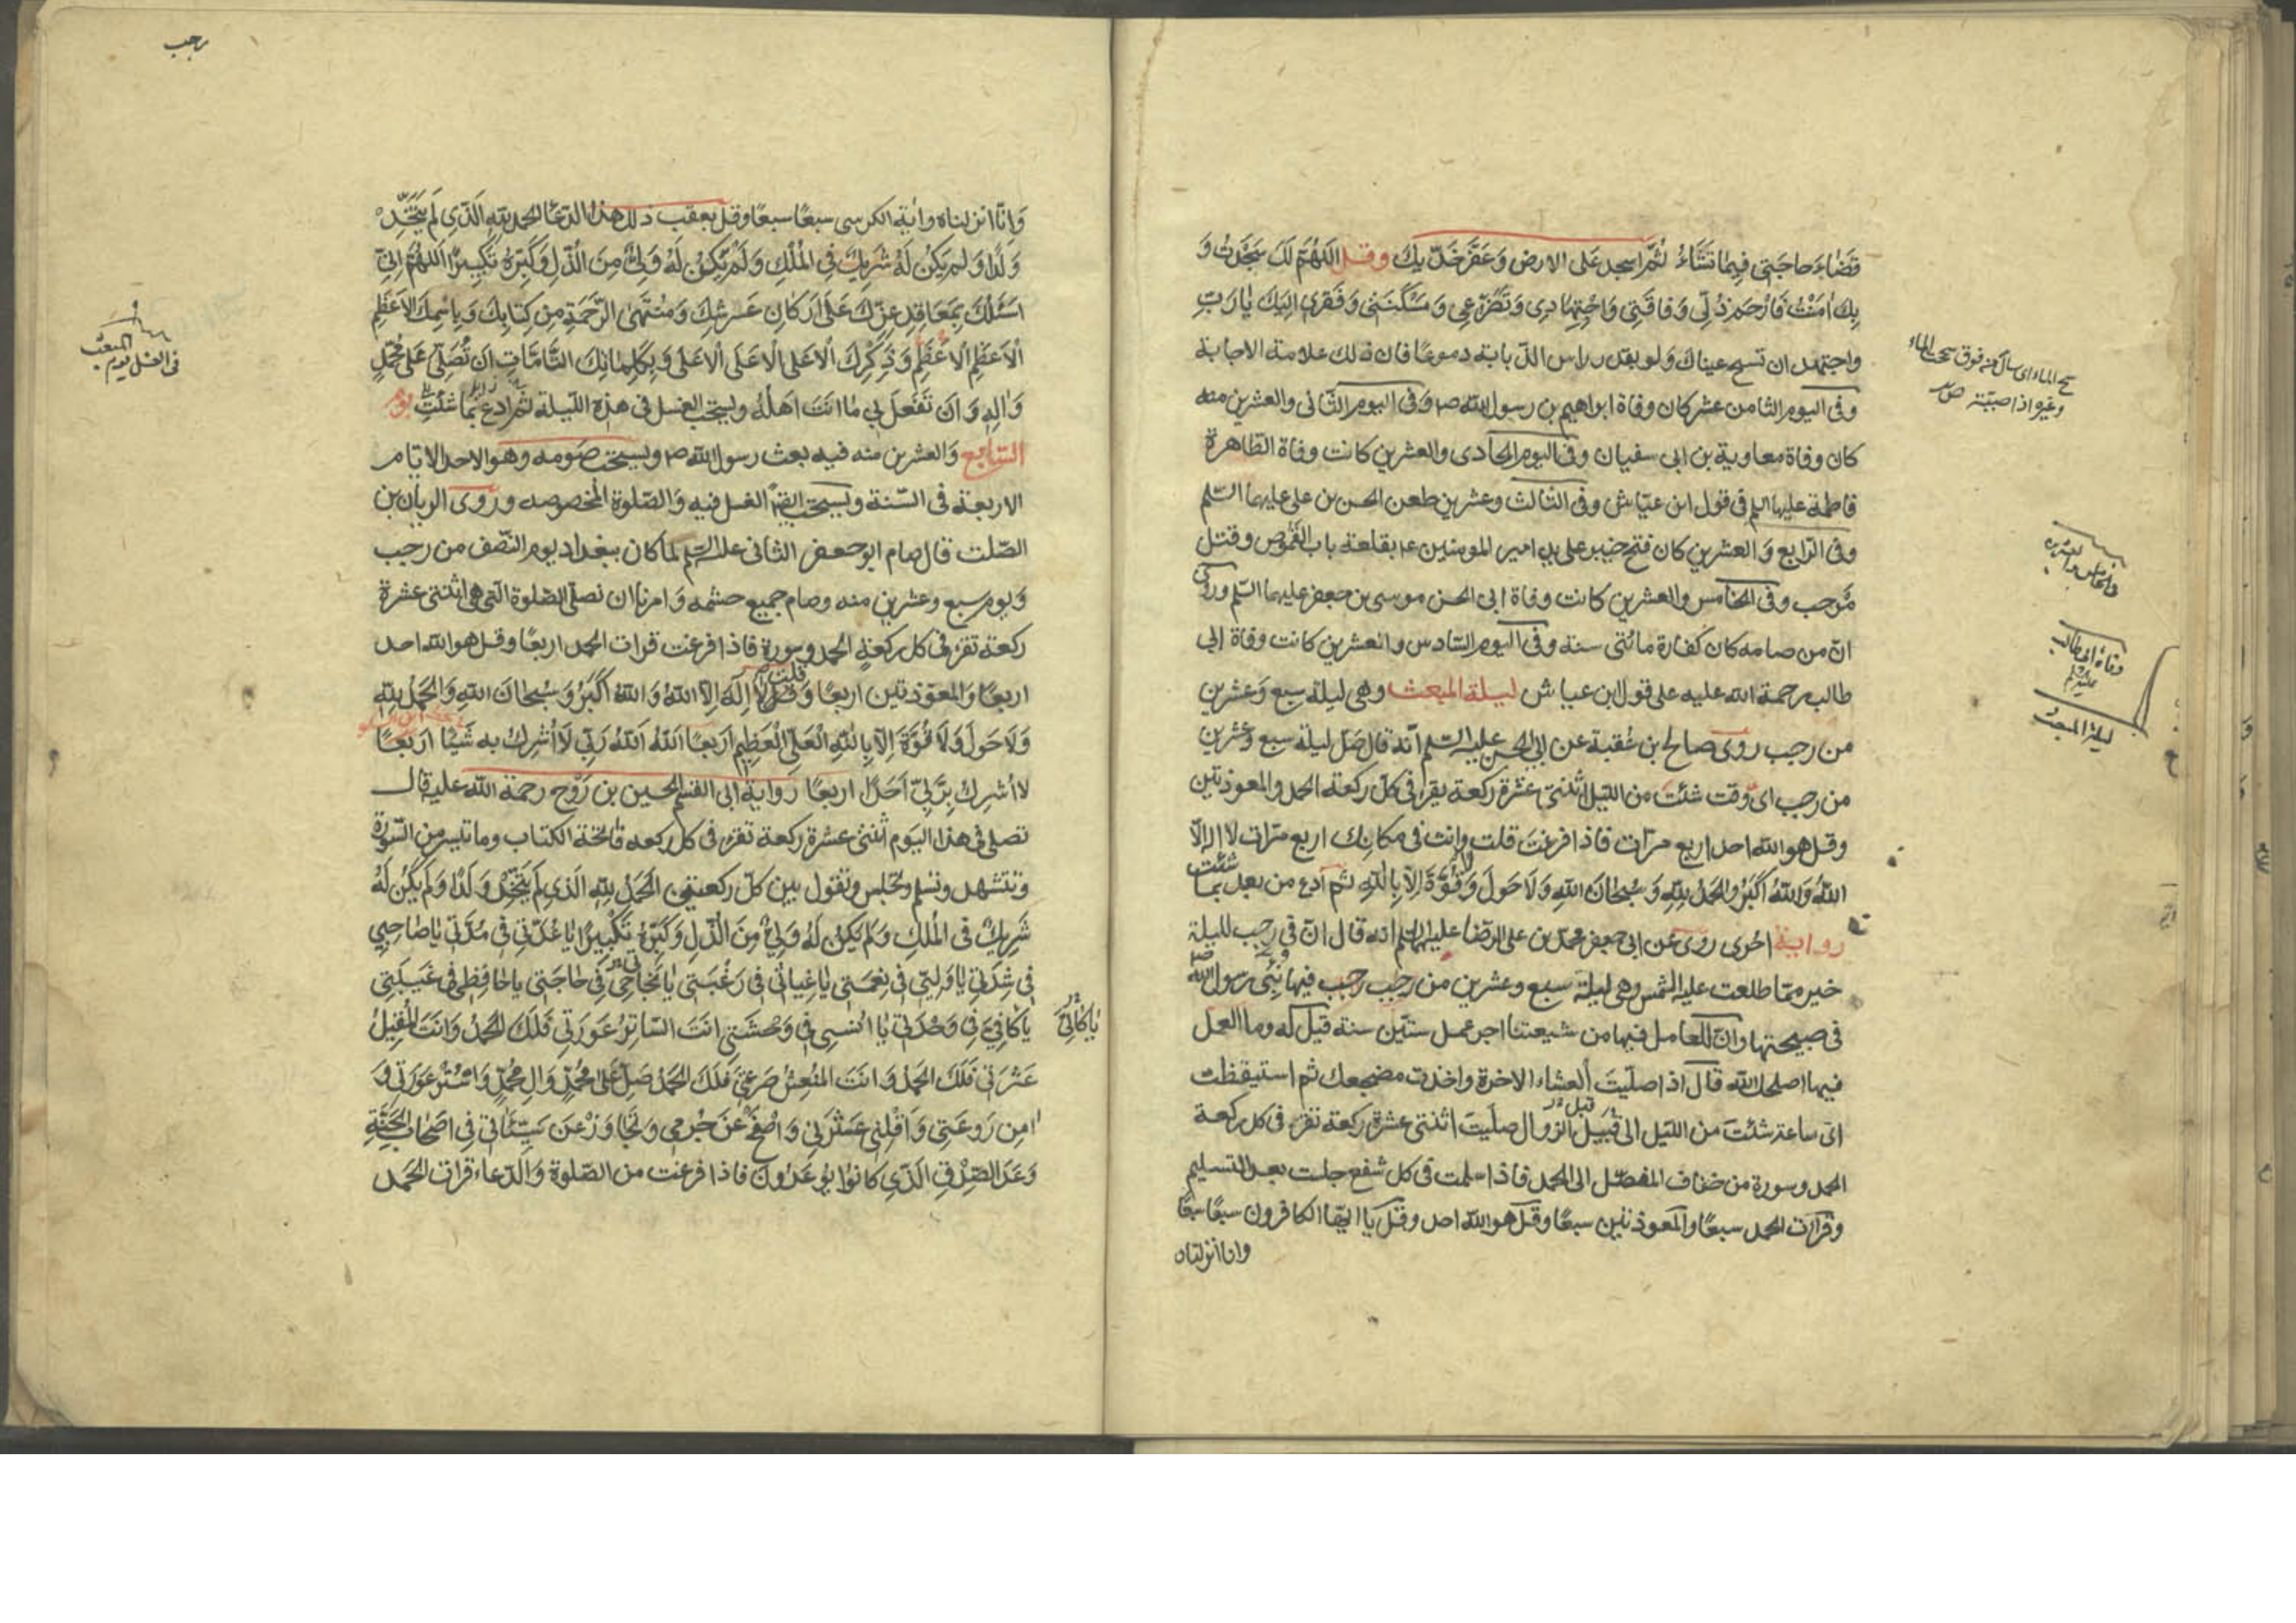 قَضَاءَ حَاجَتِي فِيمَا تَشَاءُ ثُمَّ اسجد عَلَى الارض وَعَفِّرْ خَدَّيكَ وقل اللَّهُمَّ لَكَ سَجَدْتُ وَ
بِكَ امَنْتُ فَارْحَمْ ذُلِّي وَفَاقَتِي وَاجْتِهَادِي وَتَضَرُّعِي وَمَسْكَنَتِي وَفَقْرِي اِلَيكَ يَا رَبِّ
واجتهد ان تسح عيناك ولو بقدر راس الذبابة دموعًا فان ذلك علامة الاجابة
وفى اليوم الثامن عشر كان وفاة ابراهيم بن رسول الله ص وفى اليوم الثانى والعشرين منه
كان وفاة معاوية بن ابى سفيان وفى اليوم الحادى والعشرين كانت وفاة الطاهرة
فاطمة عليها السلم فى قول ابن عيّاش وفى الثالث وعشرين طعن الحسن بن على عليهما السّلم
وفى الرابع وَالعشرين كان فتح خيبر على يد امير المومنين ع بقلعة باب القَمُوص وقتل
مَرحب وفى الخامس والعشرين كانت وفاة ابى الحسن موسى بن جعفر عليهما السّلم وروى
انّ من صامه كان كفارة مائتى سنه وفى اليوم السّادس والعشرين كانت وفاة ابى
طالب رحمة الله عليه على قول ابن عياش ليلة المبعث وهى ليلة سبع وَعشرين
من رجب روى صالح بن عُقبة عن ابى الحسن عليه السّلم انّه قال صَلِّ ليلة سبع وَعشرين
من رجب اىّ وقت شئتَ من الليل اثنتىْ عشرة ركعة يقرا فى كلّ ركعة الحمد والمعوذتين
وقل هو الله احد اربع مرّات فاذا فرغتَ قلت وانت فى مكانك اربع مرّات لا اله الّا
اللهُ وَاللهُ اَكْبَرُ وَالحَمْدُ لِلّهِ وَسُبْحَانَ اللهِ وَلَا حَوْلَ وَلا قُوَّةَ اِلّا بِاللهِ ثم ادع من بعد بما شئت
رواية اخرى روى عن ابى جعفر محمد بن على الرضا عليهما السلم انه قال انّ فى رجب لليلة
خير ممّا طلعت عليه الشّمس وهى ليلة سبع وعشرين من رجب فيها نُبِّىَ رسول الله ص
فى صبيحتها وانّ للعامل فيها من شيعتنا اجر عمل ستّين سنة قيل له وما العمل
فيها اصلحك الله قال اذا صلّيتَ العشاء الاخرة واخذت مضجعك ثم استيقظت
اىّ ساعة شئتَ من الليل الى قبيل الزوال صليتَ اثنتى عشرة ركعة تقرء فى كل ركعة
الحمد وسورة من خفاف المفصّل الى الحمد فاذا سلمت فى كل شفع جلست بعد التسليم
وقرات الحمد سبعًا والمعوذتين سبعًا وقل هو الله احد وقل يا ايّها الكافرون سبعًا سبعًا
وانا انزلناه
سح الماء اى سال من فوق سححت الماء
وغيره اذا صببته ص
وفاة ابى طالب
ليلة المبعث
رجب
وَانّا انزلناه واية الكرسى سبعًا سبعًا وقل بعقب ذلك هذا الدّعا الحمد للّه الَّذِى لَمْ يَتَّخِذْ
وَلَدًا وَلَم يَكُنْ لَهُ شَرِيكٌ فِى المُلْكِ وَلَمْ يَكُنْ لَهُ وَلِىٌّ مِنَ الذُّلِّ وَكَبِّرْهُ تَكْبِيرًا اَللّهُمَّ اِنِّى
اَسْئَلُكَ بِمَعَاقِدِ عِزِّكَ عَلَى اَرْكَانِ عَرْشِكَ وَمُنْتَهَى الرَّحْمَةِ مِن كِتَابِكَ وَبِاسْمِكَ الاَعْظَمِ
الاَعْظَمِ الاَعْظَمِ وَذِكْرِكَ الاَعْلَى الاَعْلَى الاَعْلَى وَبِكَلِمَاتِكَ التَّامَّاتِ اَنْ تُصَلِّىَ عَلَى مُحَمَّدٍ
وَالِهِ وَاَن تَفْعَلَ بِى مَا اَنْتَ اَهْلُهُ ويستحب الغسل فى هذه الليلة ثم ادع بما شئت يوم
السّابع وَالعشرين منه فيه بعث رسول الله ص ويستحب صومه وهو الاحد الايام
الاربعة فى السّنة ويستحب ايضًا الغسل فيه وَالصّلوة المخصوصه وروى الريان بن
الصّلت قال صام ابو جعفر الثانى عليه السّلم لما كان ببغداد يوم النّصف من رجب
وَيوم سبع وعشرين منه وصام جميع حشمه وَامرنا ان نصلى الصّلوة الّتى هى اثنتى عشرة
ركعة تقرء فى كل ركعةٍ الحمد وسورة فاذا فرغت قرات الحمد اربعًا وقل هو الله احد
اربعًا وَالمعوّذتين اربعًا وقلت لا اِلهَ اِلّا اللهُ وَاللهُ اَكْبَرُ وَسُبْحَانَ اللهِ وَالحَمْدُ لِلّهِ
وَلَا حَوْلَ وَلَا قُوَّةَ اِلّا بِاللهِ العَلِىِّ العَظِيمِ اَربَعًا اَللهُ اَللهُ رَبِّى لَا اُشْرِكُ به شَيْئًا اربَعًا
لا اُشرِكُ بِرَبِّى اَحَدًا اربعًا رواية ابى القسم الحسين بن رَوْح رحمة الله عليه قال
تصلى فى هذا اليوم اثنتى عشرة ركعة تقرء فى كل ركعه فاتحة الكتاب وما تيسر من السّورة
وتتشهد وتسلم وتجلس وتقول بين كلّ ركعتين الحَمْدُ لِلّهِ الَّذِى لَمْ يَتَّخِذْ وَلَدًا وَلَمْ يَكُنْ لَهُ
شَرِيكٌ فى المُلكِ وَلَمْ يَكُنْ لَهُ وَلِىٌّ مِنَ الذُّلِّ وَكَبِّرْهُ تَكْبِيرًا يَا عُدَّتِى فِى مُدَّتِى يَا صَاحِبِى
فِى شِدَّتِى يَا وَلِيِّى فِى نِعْمَتِى يَا غِيَاثِى فِى رَغْبَتِى يَا نَجَاحِى فِى حَاجَتِى يا حَافِظِى فِى غَيْبَتِى
يَا كَافِىَّ فِى وَحْدَتِى يَا اُنسِى فِى وَحْشَتِى اَنتَ السَّاتِرُ عَوْرَتِى فَلَكَ الحَمْدُ وَاَنْتَ المُقِيلُ
عَثْرَتِى فَلَكَ الحَمْدُ وَانتَ المُنْعِشُ صَرْعَتِى فَلَكَ الحَمْدُ صَلِّ عَلَى مُحَمَّدٍ وَالِ مُحَمَّدٍ وَاسْتُرْ عَوْرَتِى وَ
امِن رَوْعَتِى وَاَقِلْنِى عَثْرَتِى وَاصْفَحْ عَنْ جُرمِى وَتَجَاوَزْ عَنْ سَيِّئَاتِى فِى اَصْحَابِ الجَنَّةِ
وَعْدَ الصِّدْقِ الَّذِى كَانُوا يُوعَدُونَ فاذا فرغت من الصّلوة وَالدّعاء قرات الحمد
فى الغسل يوم المبعث